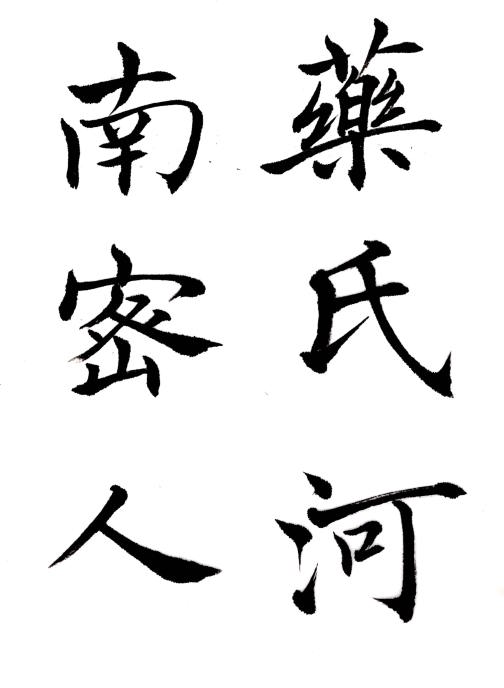 藥氏河
南密人